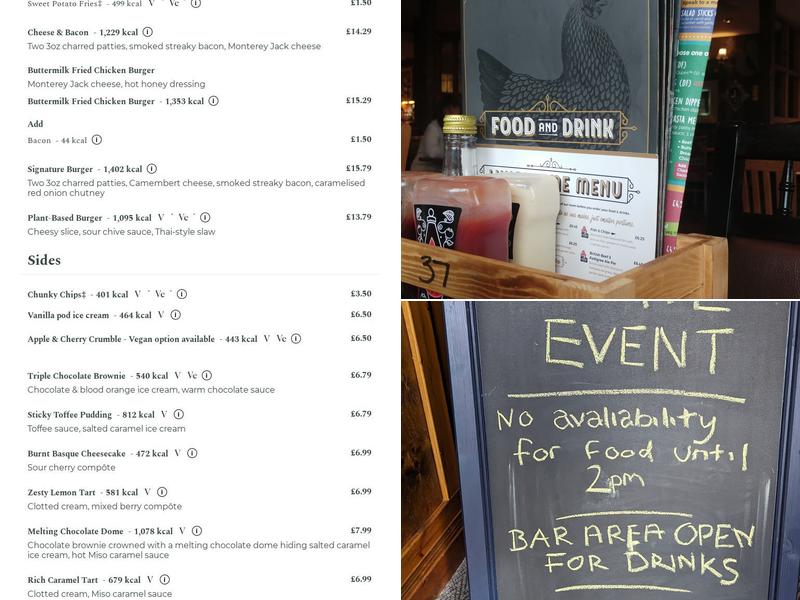 Sweet Potato Fries‡ - 499 kcal V Vc £1.50
Cheese & Bacon - 1,229 kcal £14.29
Two 3oz charred patties, smoked streaky bacon, Monterey Jack cheese
Buttermilk Fried Chicken Burger
Monterey Jack cheese, hot honey dressing
Buttermilk Fried Chicken Burger - 1,353 kcal £15.29
Add
Bacon - 44 kcal £1.50
Signature Burger - 1,402 kcal £15.79
Two 3oz charred patties, Camembert cheese, smoked streaky bacon, caramelised
red onion chutney
Plant-Based Burger - 1,095 kcal V Vc £13.79
Cheesy slice, sour chive sauce, Thai-style slaw
Sides
Chunky Chips‡ - 401 kcal V Vc £3.50
Vanilla pod ice cream - 464 kcal V £6.50
Apple & Cherry Crumble - Vegan option available - 443 kcal V Vc £6.50
Triple Chocolate Brownie - 540 kcal V £6.79
Chocolate & blood orange ice cream, warm chocolate sauce
Sticky Toffee Pudding - 812 kcal V £6.79
Toffee sauce, salted caramel ice cream
Burnt Basque Cheesecake - 472 kcal V £6.99
Sour cherry compôte
Zesty Lemon Tart - 581 kcal V £6.99
Clotted cream, mixed berry compôte
Melting Chocolate Dome - 1,078 kcal V £7.99
Chocolate brownie crowned with a melting chocolate dome hiding salted caramel
ice cream, hot Miso caramel sauce
Rich Caramel Tart - 679 kcal V £6.99
Clotted cream, Miso caramel sauce
FOOD AND DRINK
MENU
Fish & Chips
British Beef &
Pedigree Ale Pie
SALAD STICKS
37
EVENT
No avaliability
for Food until
2pm
BAR AREA OPEN
FOR DRINKS